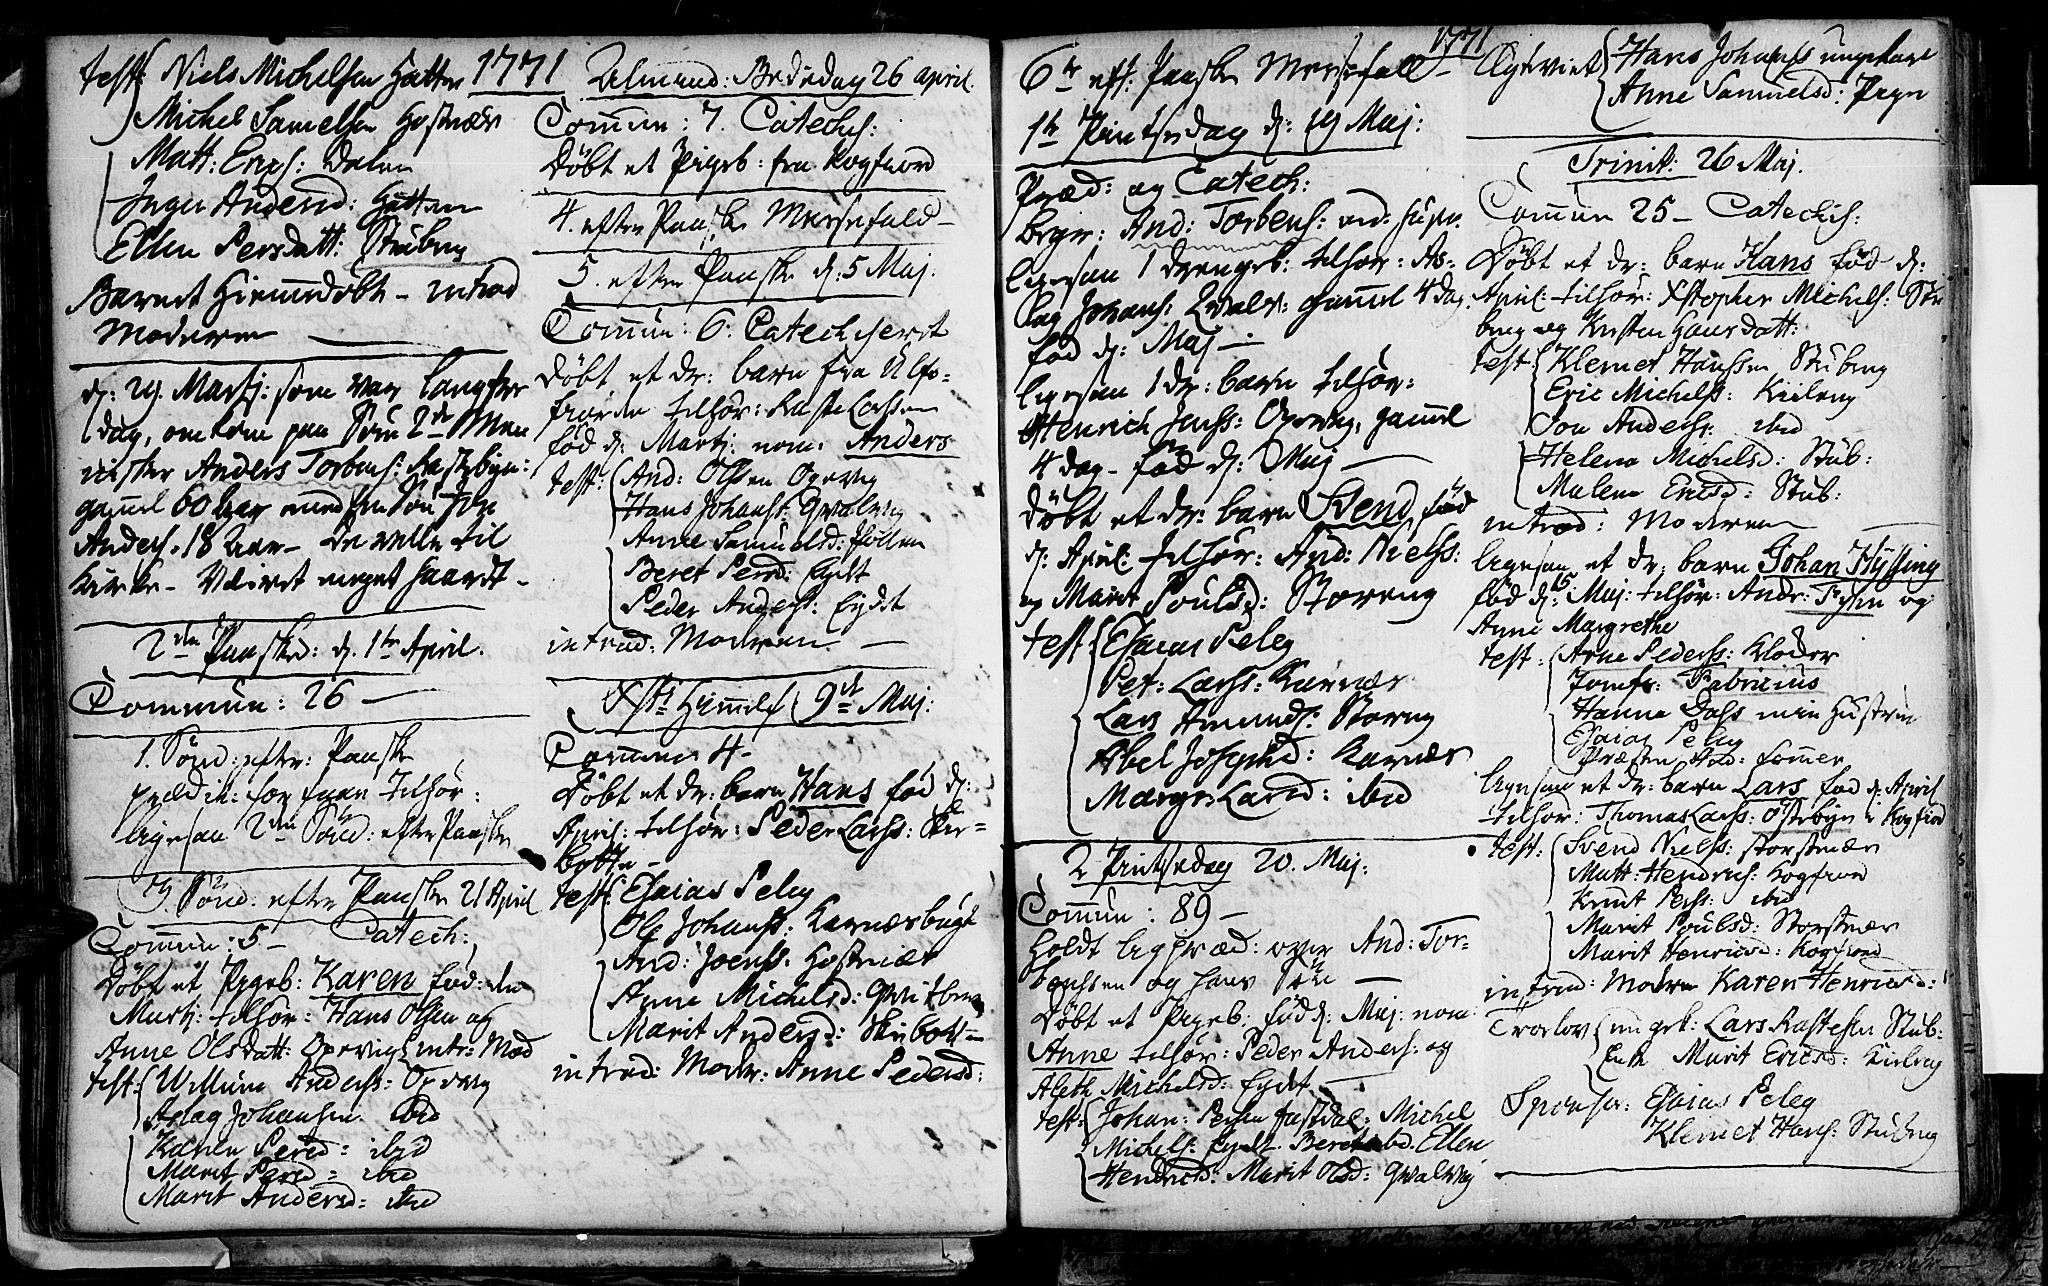 test: Niels Michelsen Hatten 1771
Michel Samelsen Hostnær
Matt: Erichs: Dalen
Inger Andersd: Hatten
Ellen Persdatt: Stubeng
Barnet Hiemedøbt – introd
Moderen
d: 29 Martj: som var langfre
dag, omkom paa Søn 2de Men
nisker Anders Torbens:
gamel 60 aar med sin Søn Joh
Anders. 18 aar – de vilde til
Kirke – Væiret meget haardt –
2den Paaskd: d. 1te April.
Commun: 26 –
1. Sönd: efter: Paaske
prædik: for faae tilhør:
ligesaa 2den Sönd: efter Paaske
3. Sönd: efter Paaske 21 April
Commun: 5 – Catech:
Døbt et Pigeb: Karen fød: den
Martj: tilhør: Hans Olsen og
Anne Olsdatt: Opevig intr: Mod
test: Willum Anderss: Opeveg
Aslag Johansen ibid
Karen Persd: ibid
Marit Persd: ibid
Marit Andersd: ibid
Almind: Bededag 26 april.
Commun: 7. Catechis:
Døbt et Pigeb: fra Kogfiord
4. efter Paaske Messefald –
5. efter Paaske d: 5 Maj.
Commun: 6. Catechiserit
Døbt et dr: barn fra Ulfs-
fiorden tilhør: Larssen
fød d: Martj: nom: Anders
test: And: Olssen Opeveg
Hans Johanss: Qvalveg
Anne Samuelsd: Hollen
Beret Persd: Eydet
Peder Anderss: Eydet
introd: Moderen –
Xsti Himmelf: 9de Maj:
Commun 4 –
Døbt et dr: barn Hans fød d:
April: tilhør: Peder Larss: Ski-
botten –
test: Esaias Peleg
Ole Johanss: Karnæsbugt
And: Joenss: Hostnæs
Anne Michelsd:
Marit Andersd: Skibott –
introd: Moder: Anne Pedersd:
1771
6te eft: Paaske Messefall –
1te Pintsedag d: 19 Maj:
Præd: og Catech:
begr: And: Torbens:
ligesaa 1 drengeb: tilhør: As-
lag Johans: Qvalv: gamel 4 dag.
fød d: Maj –
ligesaa 1 dr: barn tilhør:
Henrich Jenss: Opeveg, gamel
4 dag – fød d: Maj –
Døbt et dr: barn Svend fød
d: April: tilhør: And: Nielss:
og Marit Poulsd: Storeng
test: Esaias Peleg
Pet: Larss: Karnæs
Lars Amunds: Storeng
Abel Josephsd: Karnæs
Margr: Larsd: ibid
2 Pintsedag 20. Maj:
Commun: 89 –
Holdt ligpræd: over And: Tor-
benssen og hans Søn –
Døbt et Pigeb: fød d: Maj: nom:
Anne tilhør: Peder Anders: og
Aleth Michelsd: Eydet –
test: Johan: Persen Fastdal: Michel
Michels: Eydet Beret ibid. Ellen
Hendrichsd: Marit Olsd: Qvalveg
Egteviet Hans Johanss ungekarl
Anne Samuelsd: Pige
Trinit: 26 Maj.
Commun 25 – Catechis:
Døbt et dr: barn Hans fød d:
April: tilhør: Xstopher Michels: Stu
beng og Kirsten Hansdatt:
test: Klemet Hanssen Stubeng
Eric Michelss: Kiileng
Jon Anderss: ibid
Helena Michelsd: Stub:
Malena Ericsd: Stub:
introd: Moderen
ligesaa et dr: barn Johan Hysing
fød d: 15 Maj: tilhør: Andr: og
Anne Margrethe
test: Arne Pederss:
Jomfr: Fabricius
Hanna Dass min Hustrue
Esaias Peleg
Præsten
ligesaa et dr: barn Lars fød d: April
tilhør: Thomas Larss: Østebyn i Kogfiord
test: Svend Nielss: storstnæs
Matt: Hendrics: Kogfiord
Knut Perss: ibid
Marit Poulsd: Storstnæs
Marit Henricsd: Kogfiord
introd: Modren Karen Henricsd:
Trolov: ung k: Lars Rastesen Stub:
Enke Marit Ericsd: Kiileng
Sponsor: Esaias Peleg
Klemet Hans: Stubeng